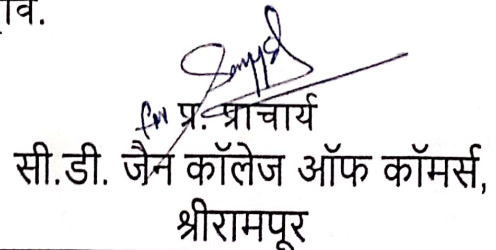 वि.
for प्र. प्राचार्य
सी.डी. जैन कॉलेज ऑफ कॉमर्स,
श्रीरामपूर